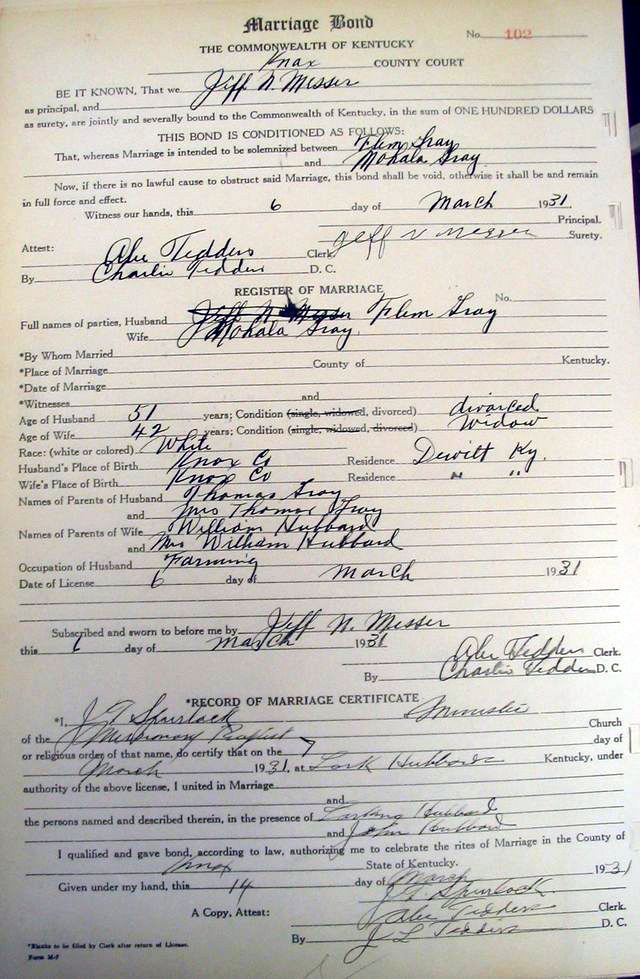 Marriage Bond
No. 102
THE COMMONWEALTH OF KENTUCKY
Knox COUNTY COURT
BE IT KNOWN, That we Jeff N. Messer
as principal, and
as surety, are jointly and severally bound to the Commonwealth of Kentucky, in the sum of ONE HUNDRED DOLLARS
THIS BOND IS CONDITIONED AS FOLLOWS:
That, whereas Marriage is intended to be solemnized between Flem Gray
and Mohala Gray
Now, if there is no lawful cause to obstruct said Marriage, this bond shall be void, otherwise it shall be and remain
in full force and effect.
Witness our hands, this 6 day of March 1931
Principal.
Jeff N Messer Surety.
Attest: Abe Tedders Clerk
By Charlie Tedders D. C.
REGISTER OF MARRIAGE
No.
Full names of parties, Husband Jeff N Messer Flem Gray
Wife Mohala Gray
*By Whom Married
*Place of Marriage County of Kentucky.
*Date of Marriage
*Witnesses and
Age of Husband 51 years; Condition (single, widowed, divorced) divorced
Age of Wife 42 years; Condition (single, widowed, divorced) Widow
Race: (white or colored) White
Husband's Place of Birth Knox Co Residence Dewitt Ky.
Wife's Place of Birth Knox Co Residence " "
Names of Parents of Husband Thomas Gray
and Mrs Thomas Gray
Names of Parents of Wife William Hubbard
and Mrs William Hubbard
Occupation of Husband Farming
Date of License 6 day of March 1931
Subscribed and sworn to before me by Jeff N. Messer
this day of March 1931
Abe Tedders Clerk.
By Charlie Tedders D. C.
*RECORD OF MARRIAGE CERTIFICATE
*I, J T Spurlock Minister Church
of the Missionary Baptist
or religious order of that name, do certify that on the 7 day of
March 1931, at Hubbards Kentucky, under
authority of the above license, I united in Marriage
and
the persons named and described therein, in the presence of Hubbard
and John Hubbard
I qualified and gave bond, according to law, authorizing me to celebrate the rites of Marriage in the County of
Knox State of Kentucky.
Given under my hand, this 14 day of March 1931
Spurlock
A Copy, Attest: Abe Tedders Clerk.
By J L Tedders D. C.
*Blanks to be filled by Clerk after return of License.
Form M-7